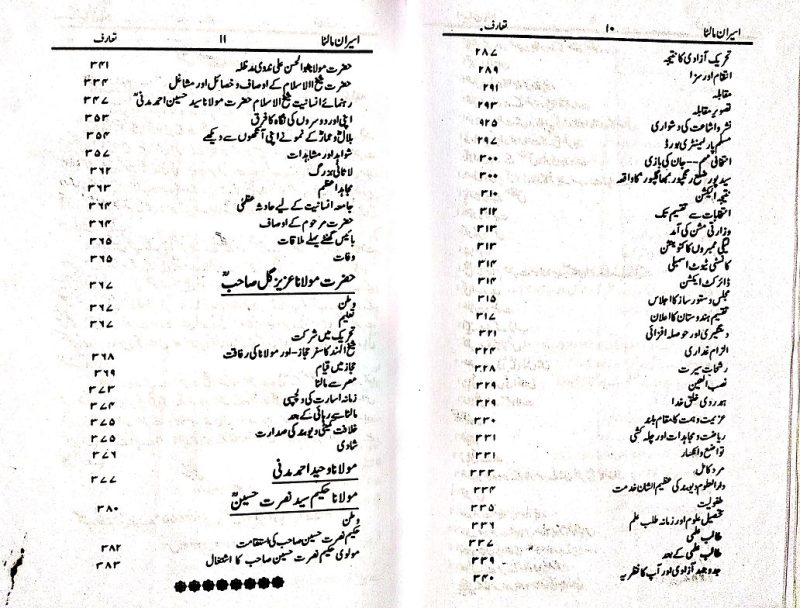 اسیران مالٹا ۱۰ تعارف
تحریک آزادی کا نتیجہ ۲۸۷
انتقام اور سزا ۲۸۹
مقابلہ ۲۹۱
تصویر مقابلہ ۲۹۳
نشر و اشاعت کی دشواری ۹۲۵
مسلم پارلیمنٹری بورڈ ۲۹۷
انتخابی مہم --- جان کی بازی ۳۰۰
سید پور ضلع رنگپور، بھاگلپور کا واقعہ ۳۰۰
نتیجہ الیکشن ۳۱۰
انتخابات سے تقسیم تک ۳۱۲
وزارتی مشن کی آمد ۳۱۳
لیگی ممبروں کا کنونیشن ۳۱۳
کانسٹی ٹیوٹ اسمبلی ۳۱۴
ڈائرکٹ ایکشن ۳۱۴
مجلس دستور ساز کا اجلاس ۳۱۵
تقسیم ہندوستان کا اعلان ۳۱۷
دستگیری اور حوصلہ افزائی ۳۲۱
الزام غداری ۳۲۴
رشحات سیرت ۳۲۸
نصب العین ۳۲۹
ہمدردی خلق خدا ۳۲۹
عزیمت و ہمت کا مقام بلند ۳۳۰
ریاضت و مجاہدات اور چلہ کشی ۳۳۱
تواضع و انکسار ۳۳۱
مرد کامل ۳۳۳
دار العلوم دیوبند کی عظیم الشان خدمت ۳۳۴
طفولیت ۳۳۵
تحصیل علوم اور زمانہ طلب علم ۳۳۶
طالب علمی ۳۳۷
طالب علمی کے بعد ۳۳۹
جدوجہد آزادی اور آپ کا نظریہ ۳۴۰
اسیران مالٹا ۱۱ تعارف
حضرت مولانا ابوالحسن علی ندوی مدظلہ ۳۴۱
حضرت شیخ الاسلام کے اوصاف و خصائل اور مشاغل ۳۴۴
رہنمائے انسانیت شیخ الاسلام حضرت مولانا سید حسین احمد مدنیؒ ۳۴۷
اپنی اور دوسروں کی نگاہ کا فرق ۳۵۳
بلالؓ و عمارؓ کے نمونے اپنی آنکھوں سے دیکھے ۳۵۴
شواہد اور مشاہدات ۳۵۷
لاثانی بزرگ ۳۶۲
مجاہد اعظم ۳۶۳
جامعہ انسانیت کے لیے حادثہ عظمیٰ ۳۶۴
حضرت مرحوم کے اوصاف ۳۶۴
بائیس گھنٹے پہلے ملاقات ۳۶۵
وفات ۳۶۵
حضرت مولانا عزیز گل صاحبؒ ۳۶۷
وطن ۳۶۷
تعلیم ۳۶۷
تحریک میں شرکت
شیخ الہند کا سفر حجاز - اور مولانا کی رفاقت ۳۶۸
حجاز میں قیام ۳۶۹
مصر سے مالٹا ۳۷۳
زمانہ اسارت کی دلچسپی ۳۷۴
مالٹا سے رہائی کے بعد ۳۷۵
خلافت کمیٹی دیوبند کی صدارت ۳۷۵
شادی ۳۷۶
مولانا وحید احمد مدنی ۳۷۷
مولانا حکیم سید نصرت حسینؒ ۳۸۰
وطن
حکیم نصرت حسین صاحب کی استقامت ۳۸۲
مولوی حکیم نصرت حسین صاحب کا اشتغال ۳۸۳